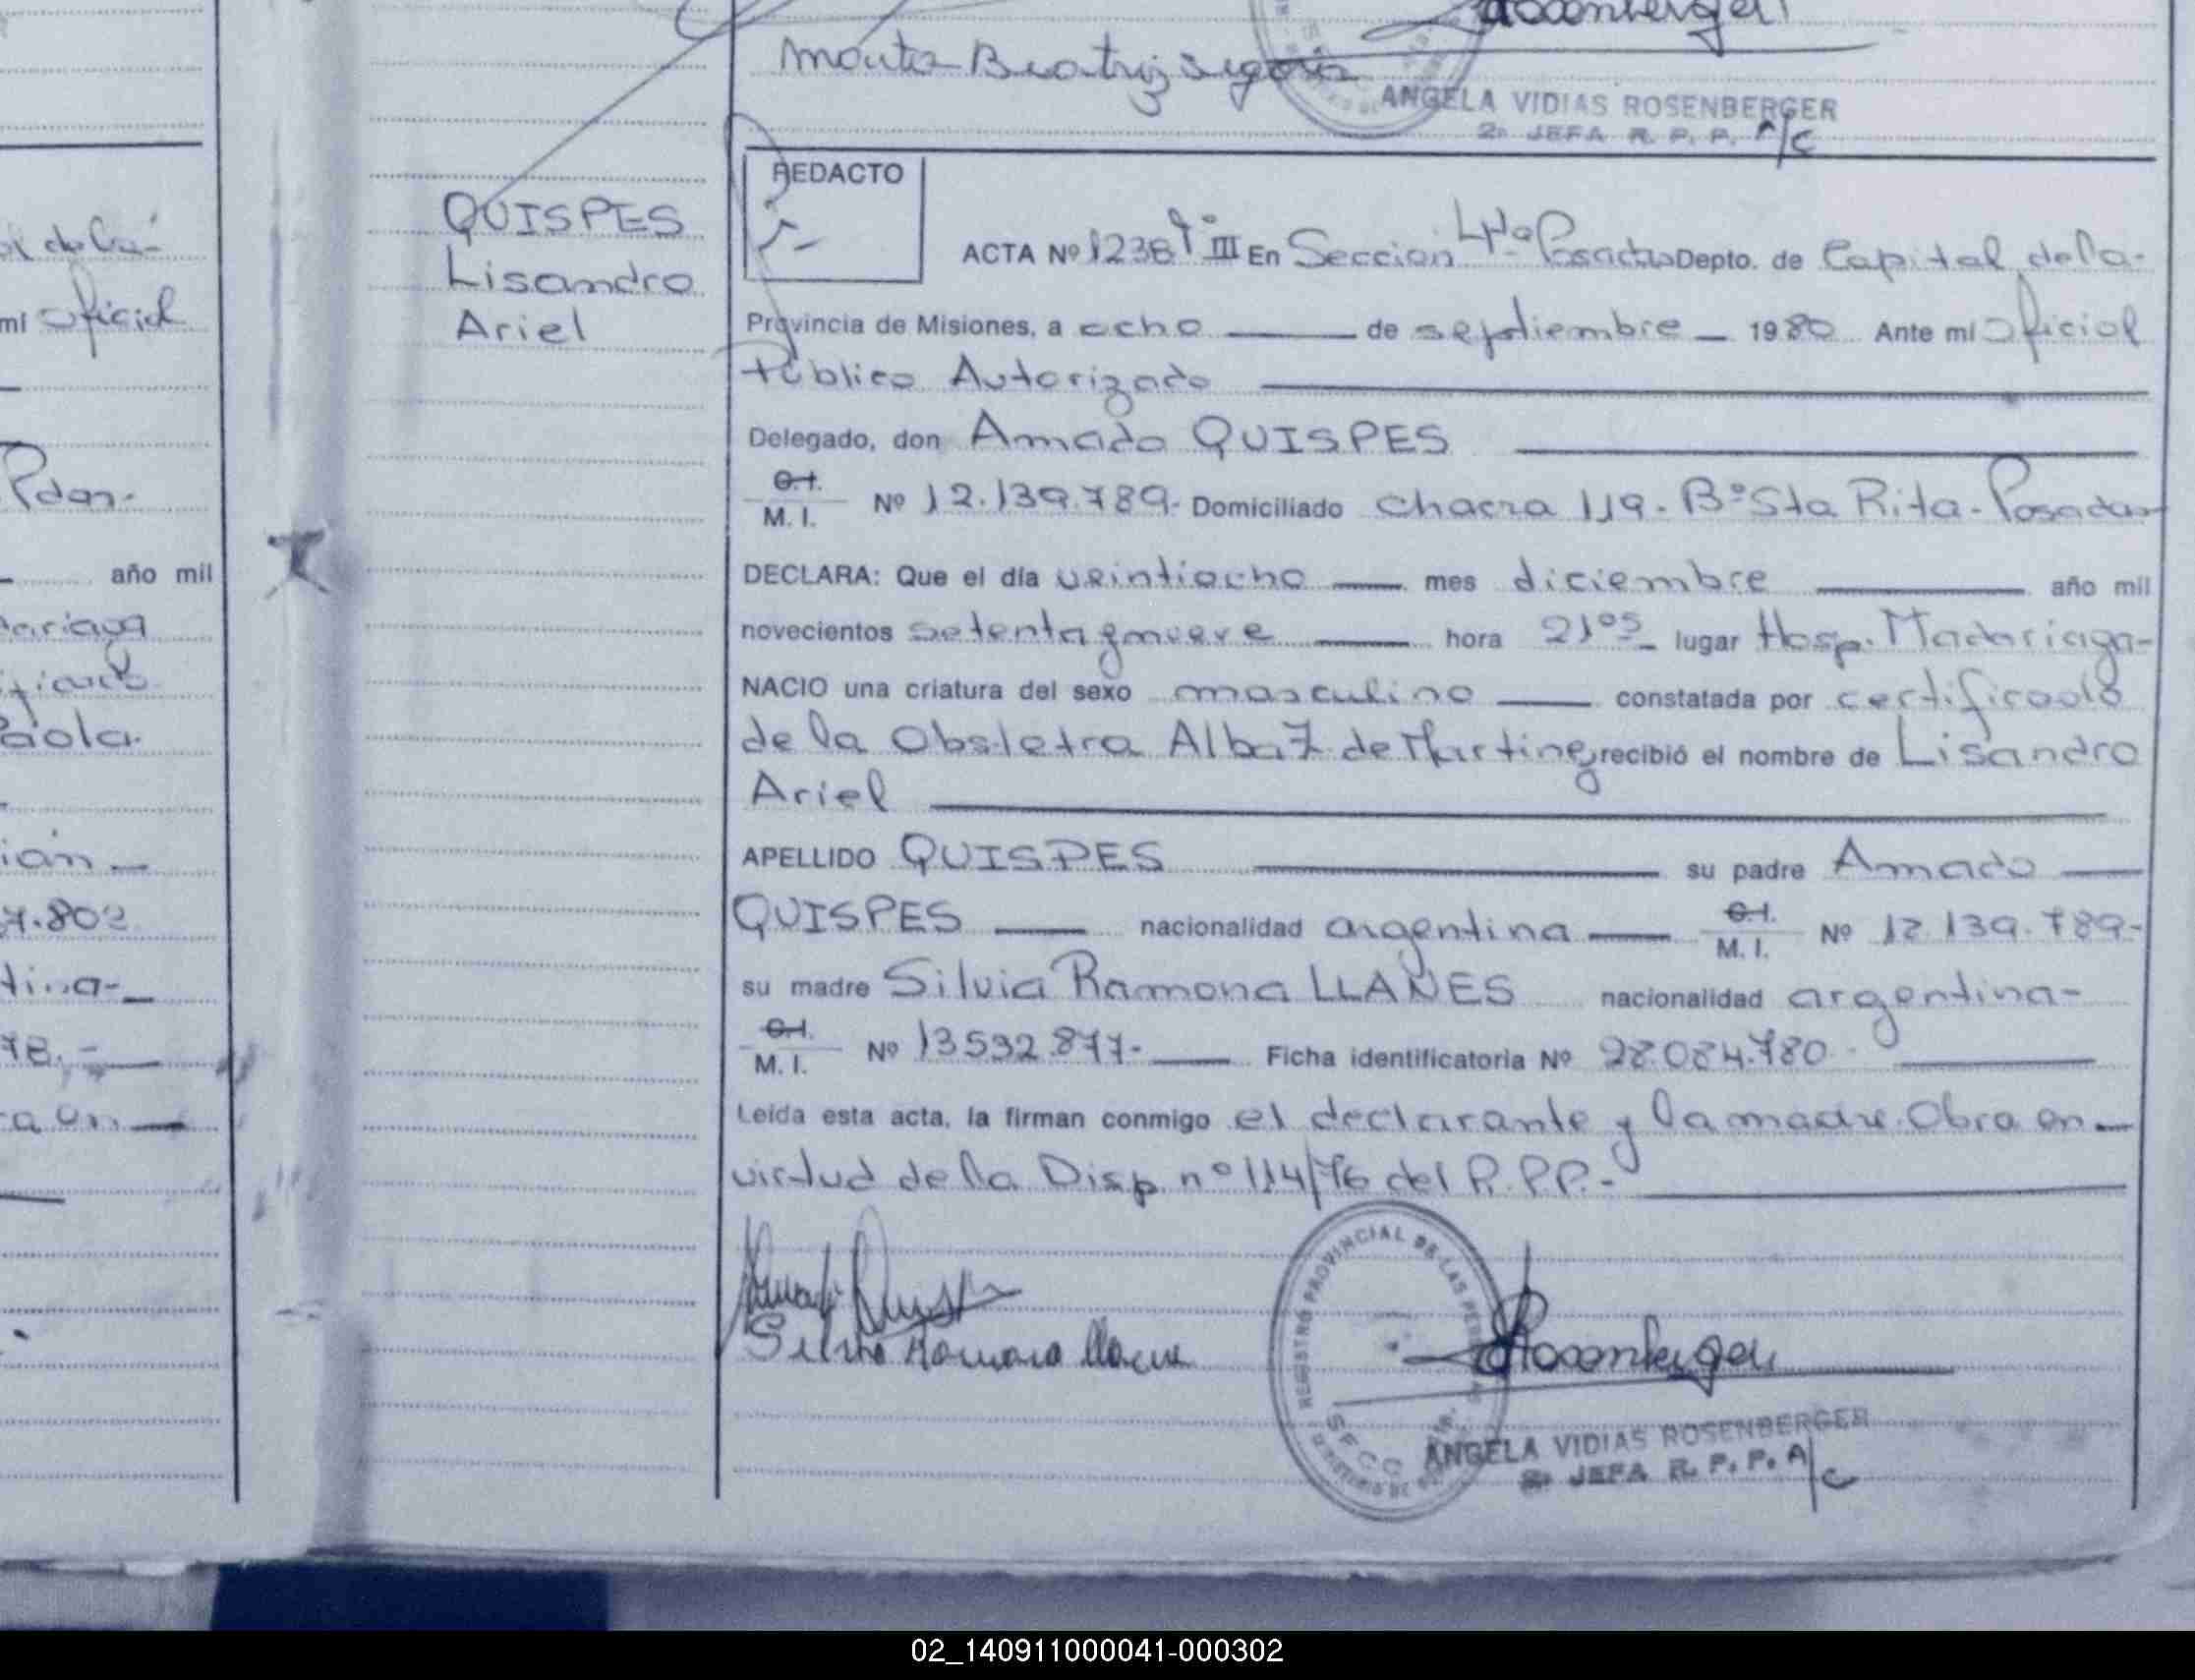 ol de la
mi Oficial
Pdas.-
año mil
dariaga
ificado
Paola.
ián
7.802
tina-
78.-
ra en
Rosenberger
ANGELA VIDIAS ROSENBERGER
2ª JEFA R. P. P. A/C
QUISPES
Lisandro
Ariel
REDACTO
ACTA Nº 1238 Tº III En Sección 4ta Posadas Depto. de Capital de la-
Provincia de Misiones, a ocho de septiembre 1980 Ante mi Oficial
Público Autorizado
Delegado, don Amado QUISPES
C.I. M. I. Nº 12.139.789.- Domiciliado Chacra 119. Bº Sta Rita. Posadas
DECLARA: Que el día veintiocho mes diciembre año mil
novecientos setenta y nueve hora 21⁰⁵ lugar Hosp. Madariaga-
NACIO una criatura del sexo masculino constatada por certificado
de la Obstetra Alba Z. de Martinez recibió el nombre de Lisandro
Ariel
APELLIDO QUISPES su padre Amado
QUISPES nacionalidad argentina C.I. M. I. Nº 12.139.789-
su madre Silvia Ramona LLANES nacionalidad argentina-
C.I. M. I. Nº 13532.877- Ficha identificatoria Nº 28.084.780.-
Leída esta acta, la firman conmigo el declarante y la madre. Obra en
virtud de la Disp. nº 114/76 del R.P.P.-
Amado Quispes
Silvia Ramona Llanes
REGISTRO PROVINCIAL DE LAS PERSONAS
Rosenberger
ANGELA VIDIAS ROSENBERGER
2ª JEFA R. P. P. A/C
02_140911000041-000302